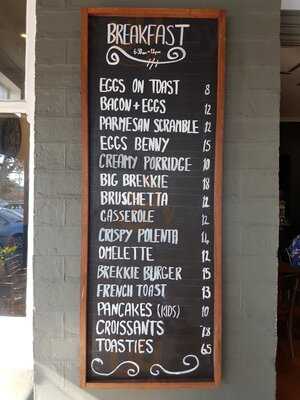 BREAKFAST
6:30am - 12pm
EGGS ON TOAST 8
BACON + EGGS 12
PARMESAN SCRAMBLE 12
EGGS BENNY 15
CREAMY PORRIDGE 10
BIG BREKKIE 18
BRUSCHETTA 12
CASSEROLE 12
CRISPY POLENTA 14
OMELETTE 12
BREKKIE BURGER 15
FRENCH TOAST 13
PANCAKES (KIDS) 10
CROISSANTS
TOASTIES 6.5